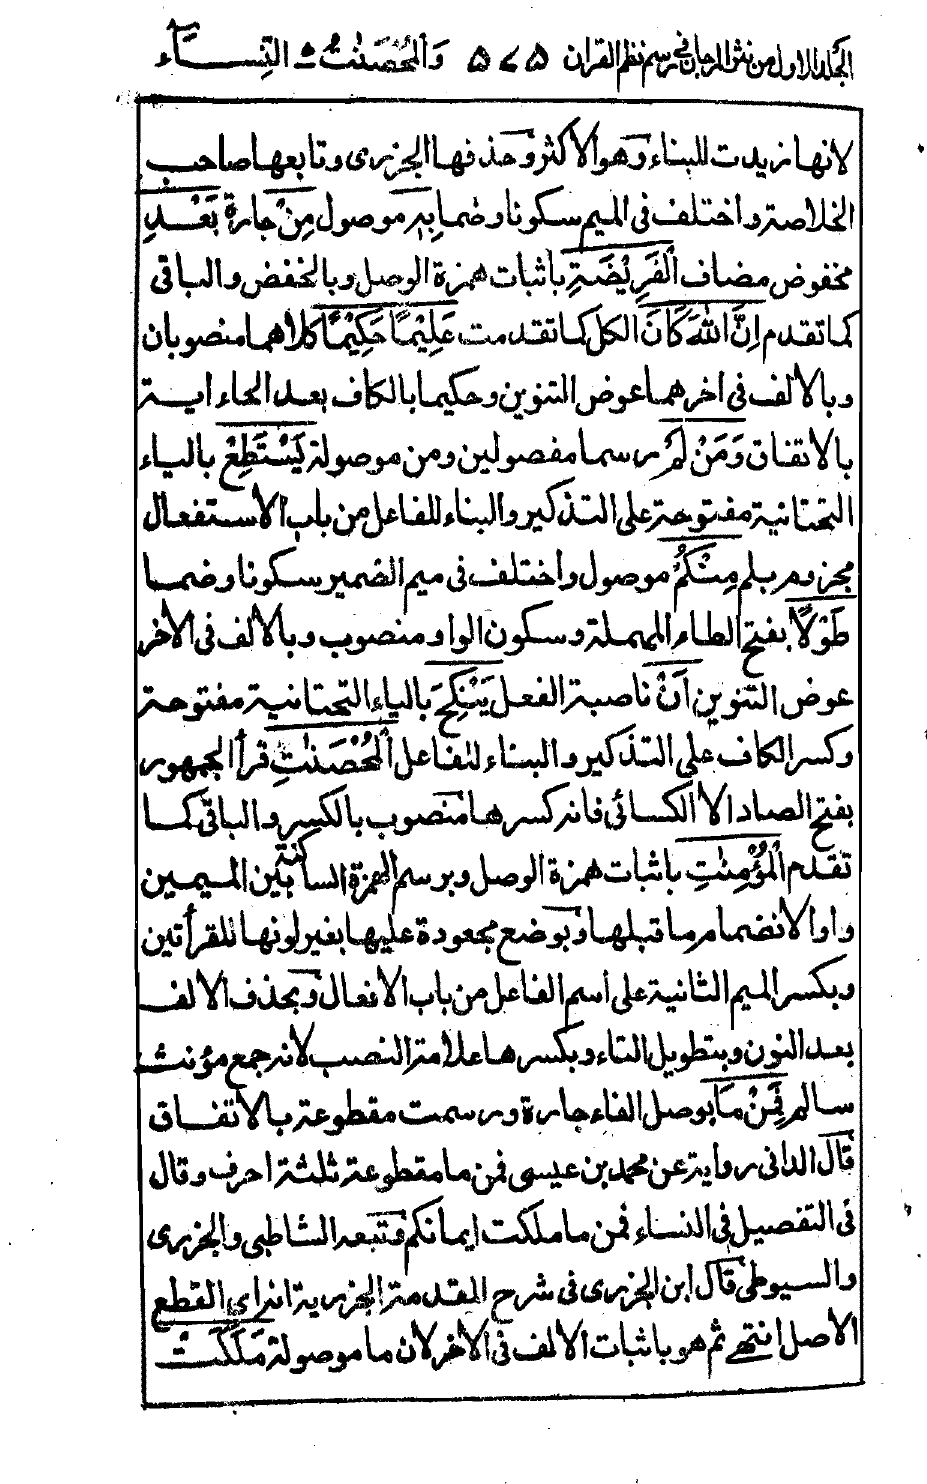 المجلد الاول من نثر المرجان في رسم نظم القران ۵۷۵ وَالْمُحْصَنٰتُ ۵ النِّسَآء
لانها زيدت للبناء وهو الاكثر وحذفها الجزرى وتابعها صاحب
الخلاصة واختلف فى الميم سكونا وضما بِهٖ موصول مِنْ جارة بَعْدِ
مخفوض مضاف الْفَرِيْضَةِ باثبات همزة الوصل وبالخفض والباقى
كما تقدم اِنَّ اللّٰهَ كَانَ الكل كما تقدمت عَلِيْمًا حَكِيْمًا كلاهما منصوبان
وبالالف فى اخرهما عوض التنوين وحكيما بالكاف بعد الحاء اية
بالاتفاق وَمَنْ لَّمْ رسما مفصولين ومن موصولة يَسْتَطِعْ بالياء
التحتانية مفتوحة على التذكير والبناء للفاعل من باب الاستفعال
مجزوم بلم مِنْكُمْ موصول واختلف فى ميم الضمير سكونا وضما
طَوْلًا بفتح الطاء المهملة وسكون الواو منصوب وبالالف فى الاخر
عوض التنوين اَنْ ناصبة الفعل يَنْكِحَ بالياء التحتانية مفتوحة
وكسر الكاف على التذكير والبناء للفاعل الْمُحْصَنٰتِ قرأ الجمهور
بفتح الصاد الا الكسائى فانه كسرها منصوب بالكسر والباقى كما
تقدم الْمُؤْمِنٰتِ باثبات همزة الوصل وبرسم الهمزة الساكنة بين الميمين
واوا لانضمام ما قبلها وبوضع مجعودة عليها بغير لونها للقرأتين
وبكسر الميم الثانية على اسم الفاعل من باب الافعال وبحذف الالف
بعد النون وبتطويل التاء وبكسرها علامة النصب لانه جمع مؤنث
سالم فَمِنْ مَّا بوصل الفاء جارة ورسمت مقطوعة بالاتفاق
قال الدانى رواية عن محمد بن عيسى فمن ما مقطوعة ثلثة احرف وقال
فى التفصيل فى النساء فمن ما ملكت ايمانكم فتبعه الشاطبى والجزرى
والسيوطى قال ابن الجزرى فى شرح المقدمة الجزرية انه اى القطع
الاصل انتهى ثم هو باثبات الالف فى الاخر لان ما موصولة مَلَكَتْ